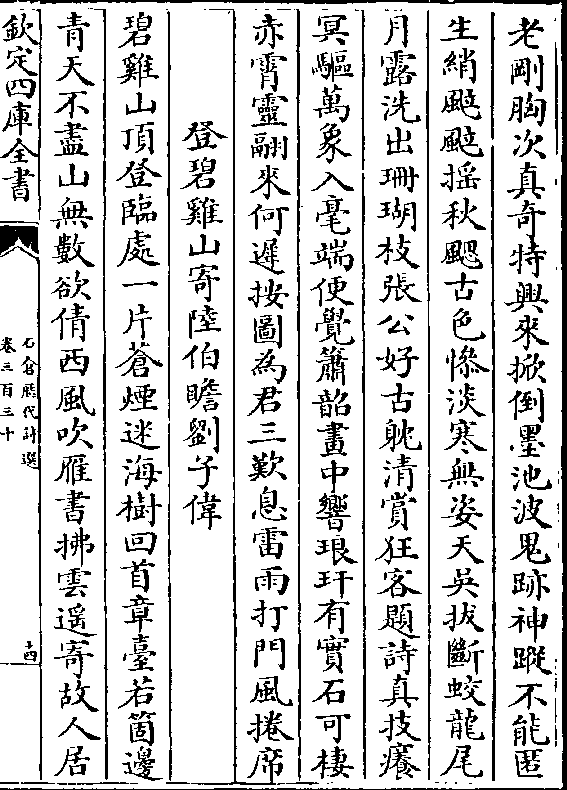 老剛胸次真奇特興來掀倒墨池波鬼跡神蹤不能匿
生綃颼颼揺秋颸古色慘淡寒無姿天吳拔斷蛟龍尾
月露洗出珊瑚枝張公好古躭清賞狂客題詩真技癢
冥驅萬象入毫端便覺簫韶畫中響琅玕有實石可棲
赤霄靈翮來何遲按圖為君三歎息雷雨打門風捲席
登碧雞山寄陸伯瞻劉子偉
碧雞山頂登臨處一片蒼煙迷海樹回首章臺若箇邊
青天不盡山無數欲倩西風吹雁書拂雲遥寄故人居
欽定四庫全書
石倉歷代詩選
卷三百三十
十四